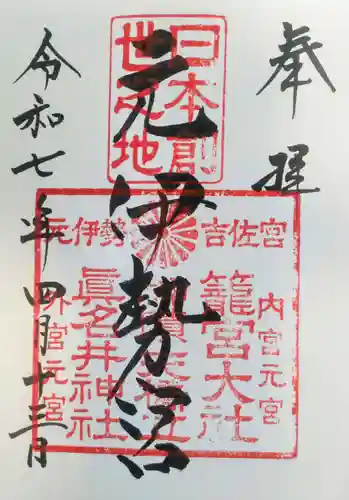 奉拝
日本創
世之地
元伊勢
吉佐宮
内宮元宮
籠宮大社
眞名井神社
元伊勢
外宮元宮
令和七年四月十三日